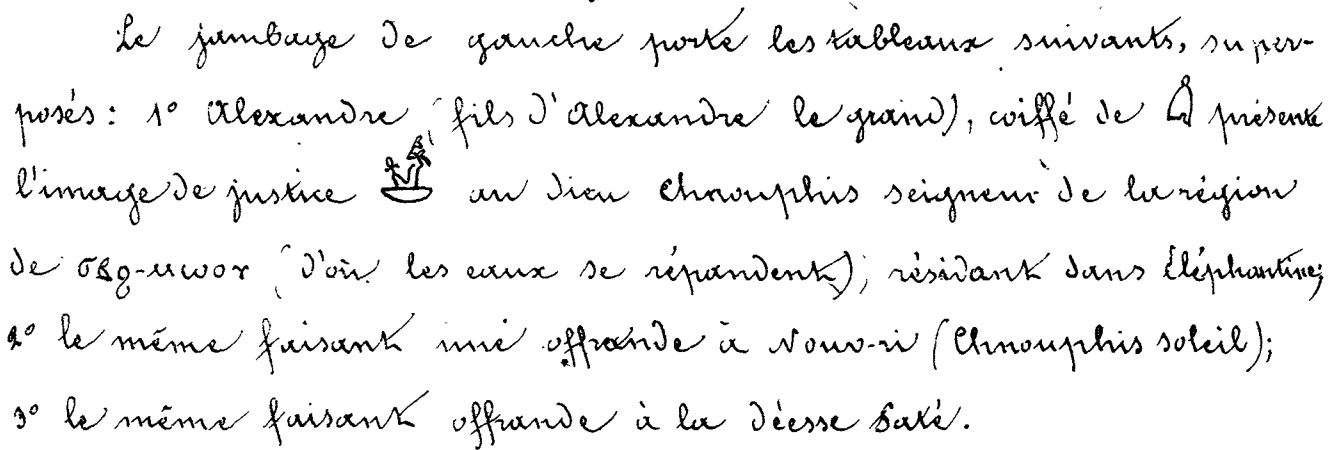 Le jambage de gauche porte les tableaux suivants, super-
posés: 1° Alexandre (fils d'Alexandre le grand), coiffé de présente
l'image de justice au dieu Chnouphis seigneur de la région
de (d'où les eaux se répandent), résidant dans Éléphantine;
2° le même faisant une offrande à Nouv-ri (Chnouphis soleil);
3° le même faisant offrande à la déesse Saté.